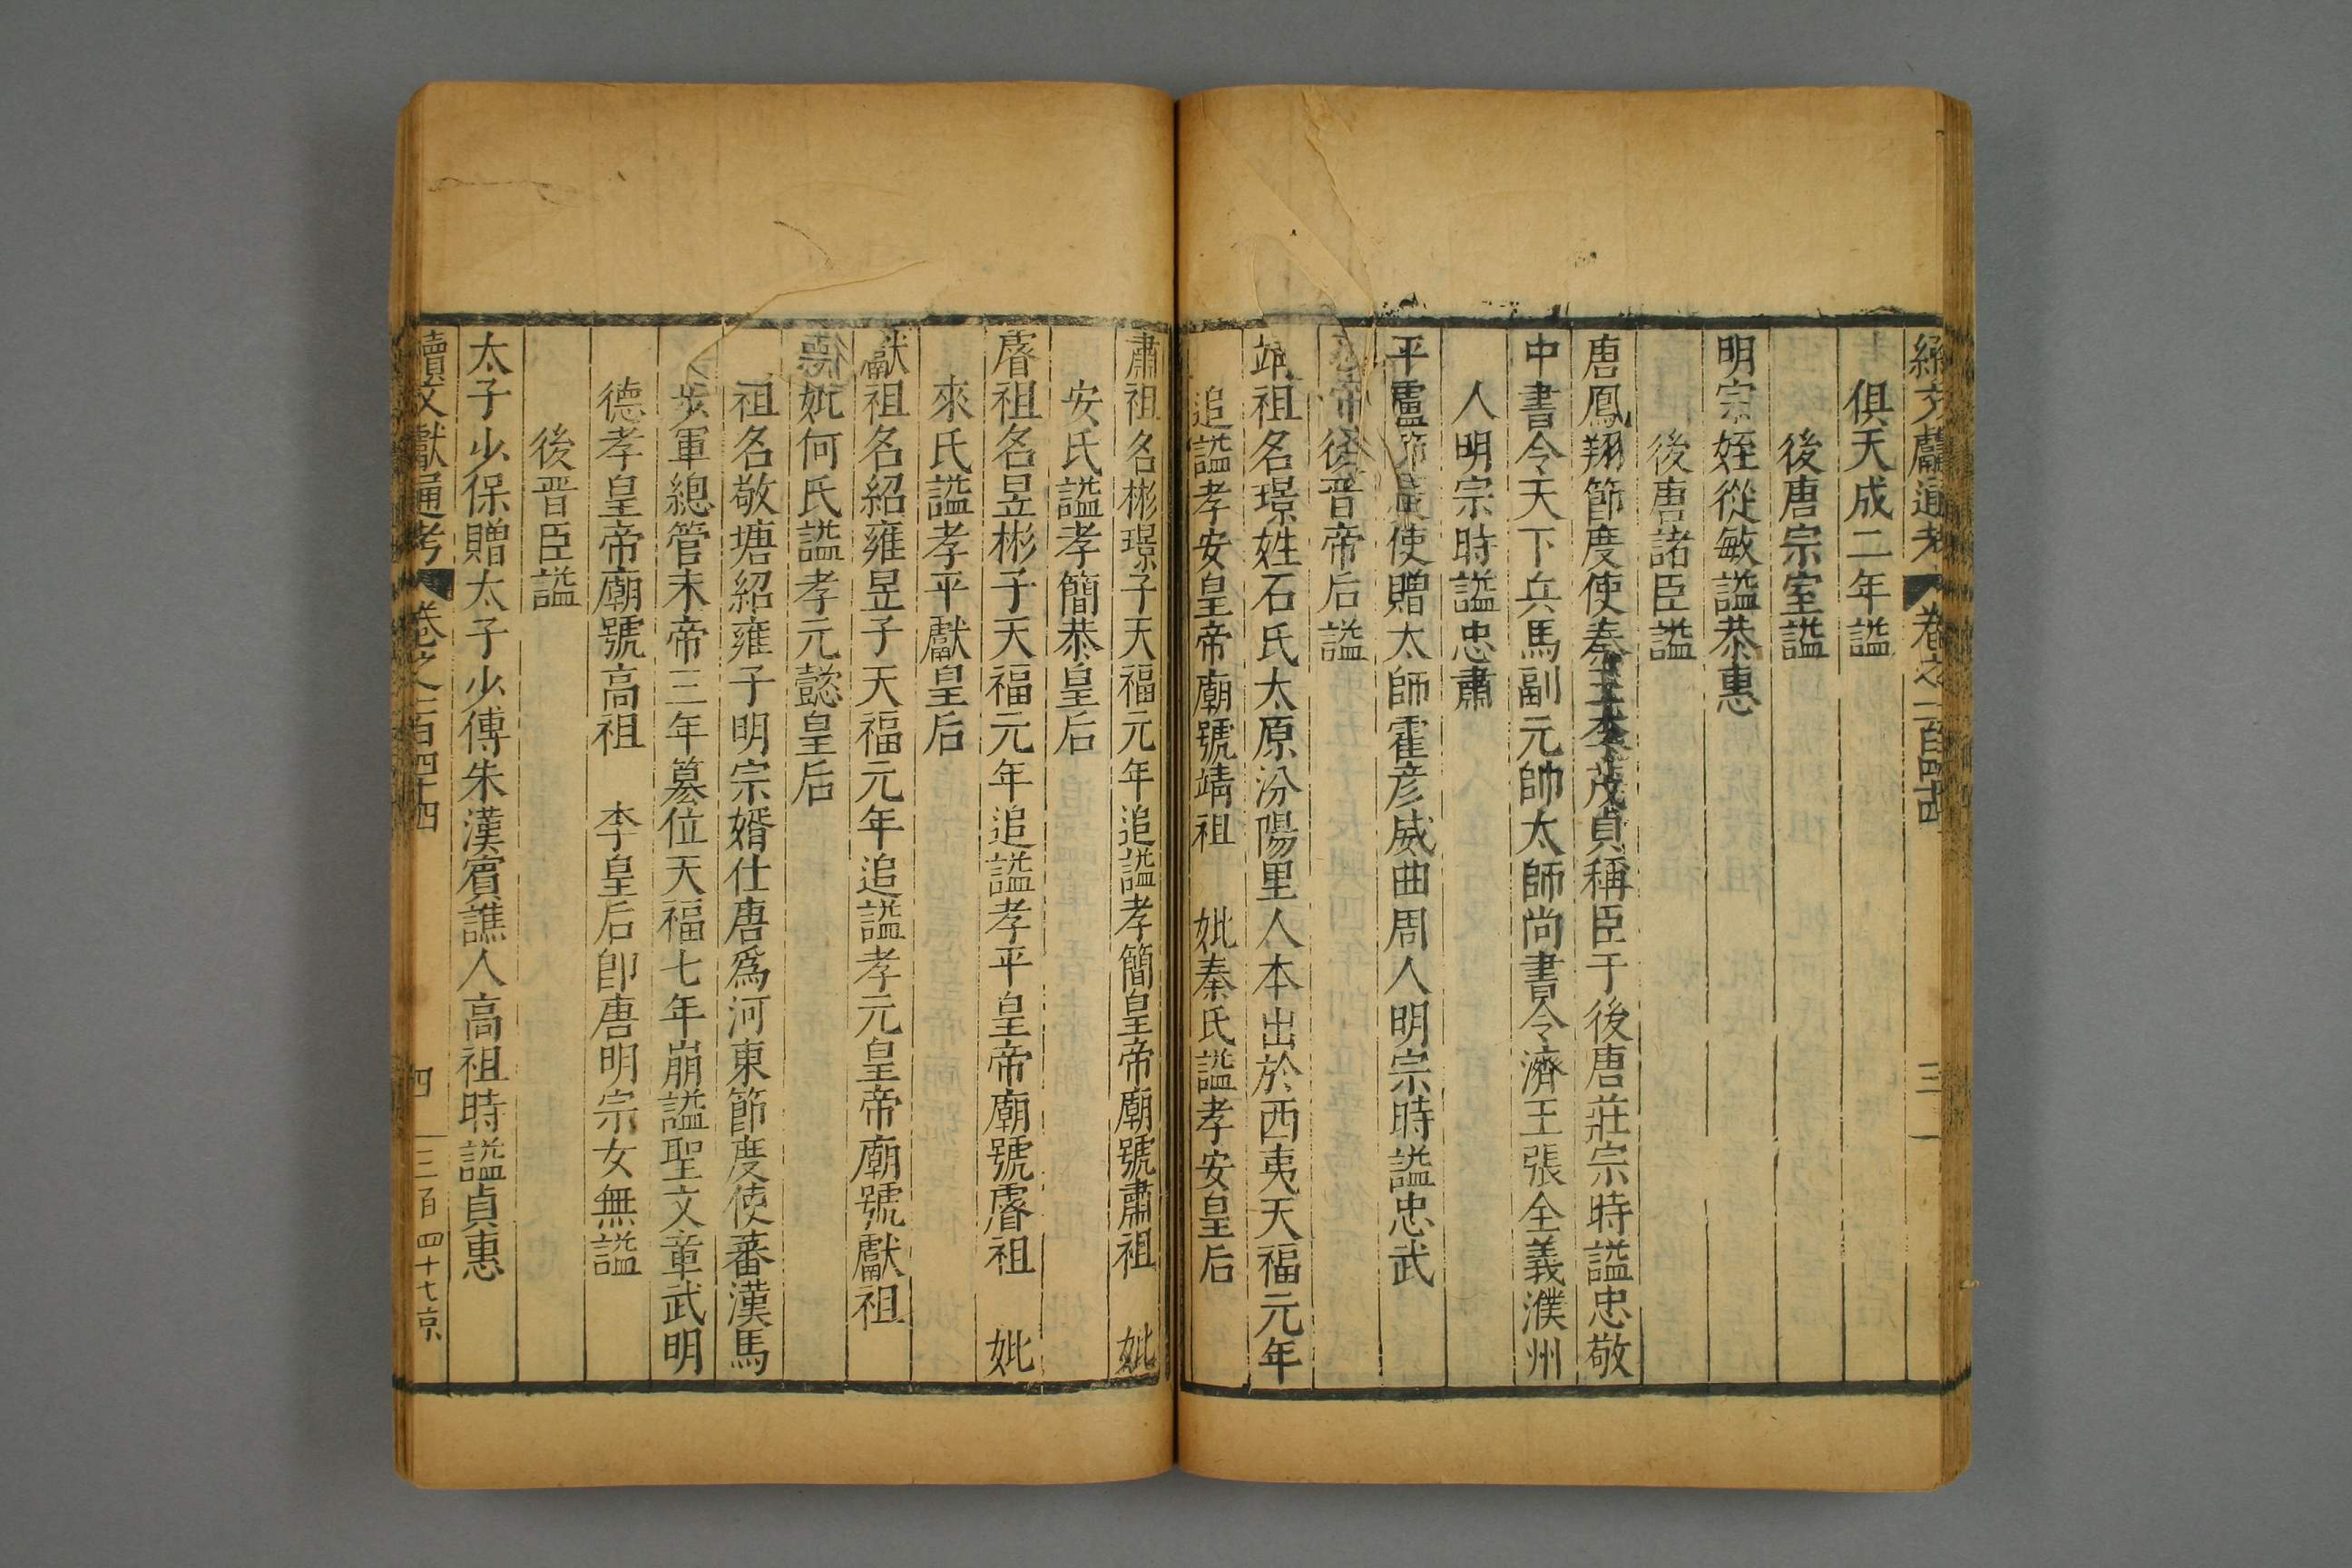 續文獻通考 卷之一百四十四 三
俱天成二年謚
後唐宗室謚
明宗姪從敏謚恭惠
後唐諸臣謚
唐鳳翔節度使秦王李茂貞稱臣于後唐莊宗時謚忠敬
中書令天下兵馬副元帥太師尚書令濟王張全義濮州
人明宗時謚忠肅
平盧節度使贈太師霍彥威曲周人明宗時謚忠武
後晉帝后謚
靖祖名璟姓石氏太原汾陽里人本出於西夷天福元年
追謚孝安皇帝廟號靖祖 妣秦氏謚孝安皇后
肅祖名彬璟子天福元年追謚孝簡皇帝廟號肅祖 妣
安氏謚孝簡恭皇后
睿祖名昱彬子天福元年追謚孝平皇帝廟號睿祖 妣
來氏謚孝平獻皇后
獻祖名紹雍昱子天福元年追謚孝元皇帝廟號獻祖
妣何氏謚孝元懿皇后
祖名敬塘紹雍子明宗婿仕唐爲河東節度使蕃漢馬
步軍總管末帝三年篡位天福七年崩謚聖文章武明
德孝皇帝廟號高祖 李皇后卽唐明宗女無謚
後晋臣謚
太子少保贈太子少傅朱漢賓譙人高祖時謚貞惠
續文獻通考 卷之一百四十四 四 三百四十七京